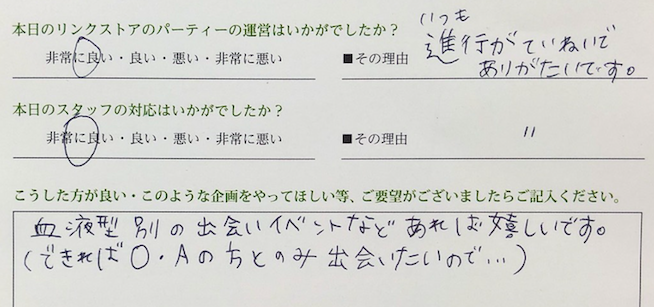 本日のリンクストアのパーティーの運営はいかがでしたか？
非常に良い・良い・悪い・非常に悪い
■その理由
いつも
進行がていねいで
ありがたいです。
本日のスタッフの対応はいかがでしたか？
非常に良い・良い・悪い・非常に悪い
■その理由
〃
こうした方が良い・このような企画をやってほしい等、ご要望がございましたらご記入ください。
血液型別の出会いイベントなどあれば嬉しいです。
(できればO・Aの方とのみ出会いたいので…)